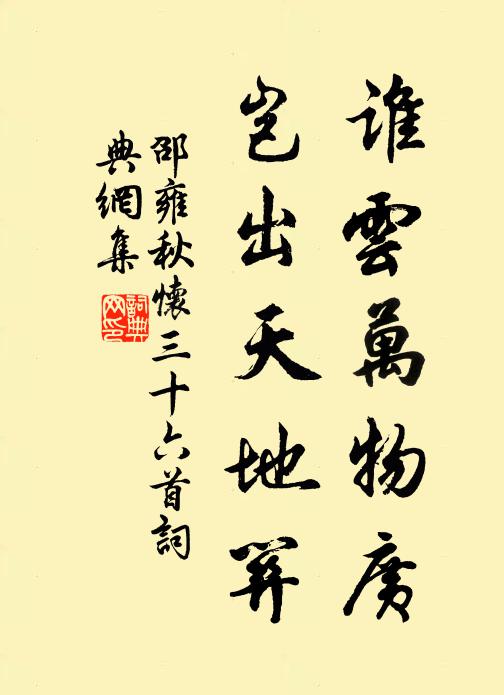 誰雲萬物廣
豈出天地
邵雍秋懷三十六首詞
典網集
詞典
网印